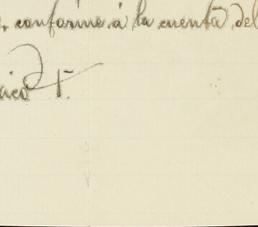 conforme á la cuenta del